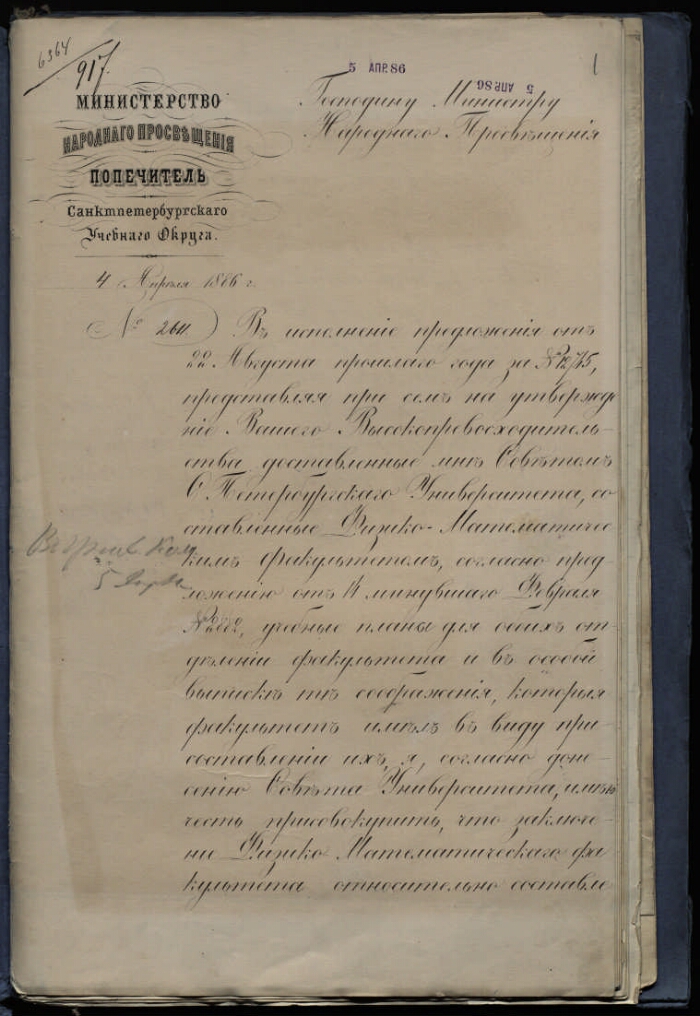 6364
917.
5 АПР. 86
5 АПР. 86
1
МИНИСТЕРСТВО
НАРОДНАГО ПРОСВѢЩЕНІЯ
ПОПЕЧИТЕЛЬ
Санктпетербургскаго
Учебнаго Округа.
Господину Министру
Народнаго Просвѣщенія
4 Апрѣля 1886 г.
№ 2611
Въ исполненіе предложенія отъ
22 Августа прошлаго года за № 12715,
представляя при семъ на утвержде
ніе Вашего Высокопревосходитель-
ства доставленные мнѣ Совѣтомъ
С Петербургскаго Университета, со
ставленные Физико-Математичес
кимъ факультетомъ, согласно пред
ложенію отъ 14 минувшаго Февраля
№ 2282, учебные планы для обоихъ от
дѣленій факультета и въ особой
выпискѣ тѣ соображенія, которыя
факультетъ имѣлъ въ виду при
составленіи ихъ, я, согласно доне
сенію Совѣта Университета, имѣю
честь присовокупить, что заключе
ніе Физико Математическаго фа
культета относительно составле
5